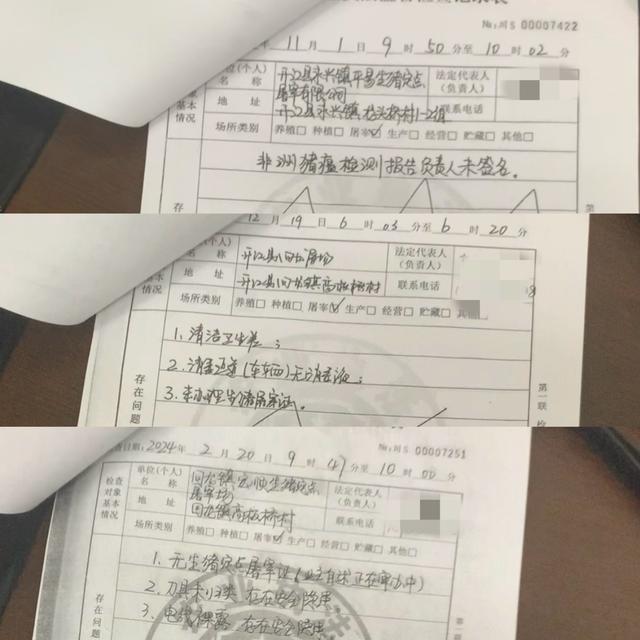 №:川S 00007422
11 月 1 日 9 时 50 分至 10 时 02 分
单位(个人)名称 开江县永兴镇平易生猪定点屠宰有限公司
法定代表人(负责人)
基本情况
地址 开江县永兴镇 桥村1-2组
联系电话
场所类别 养殖□ 种植□ 屠宰☑ 生产□ 经营□ 贮藏□ 其他□
非洲猪瘟检测报告负责人未签名。
存在
第一
12 月 19 日 6 时 03 分至 6 时 20 分
开江县 屠场
名称
法定代表人(负责人)
基本情况
地址 开江县 镇 桥村
联系电话
场所类别 养殖□ 种植□ 屠宰☑ 生产□ 经营□ 贮藏□ 其他□
1. 清洁卫生差;
2. 消毒通道(车车四)无消毒液;
3. 未办理生猪屠宰证。
存在问题
第一联 检
日期: 2024 年 2 月 20 日 9 时 47 分至 10 时 00 分
№:川S 00007251
检查对象基本情况
单位(个人)名称 回龙镇 生猪定点屠宰场
法定代表人(负责人)
地址 回龙镇 桥村
联系电话
场所类别 养殖□ 种植□ 屠宰☑ 生产□ 经营□ 贮藏□ 其他□
1. 无生猪定点屠宰证(业主自述正在申办中)
2. 刀具未归类 存在安全隐患
3. 电线裸露 存在安全隐患
存在问题
第一